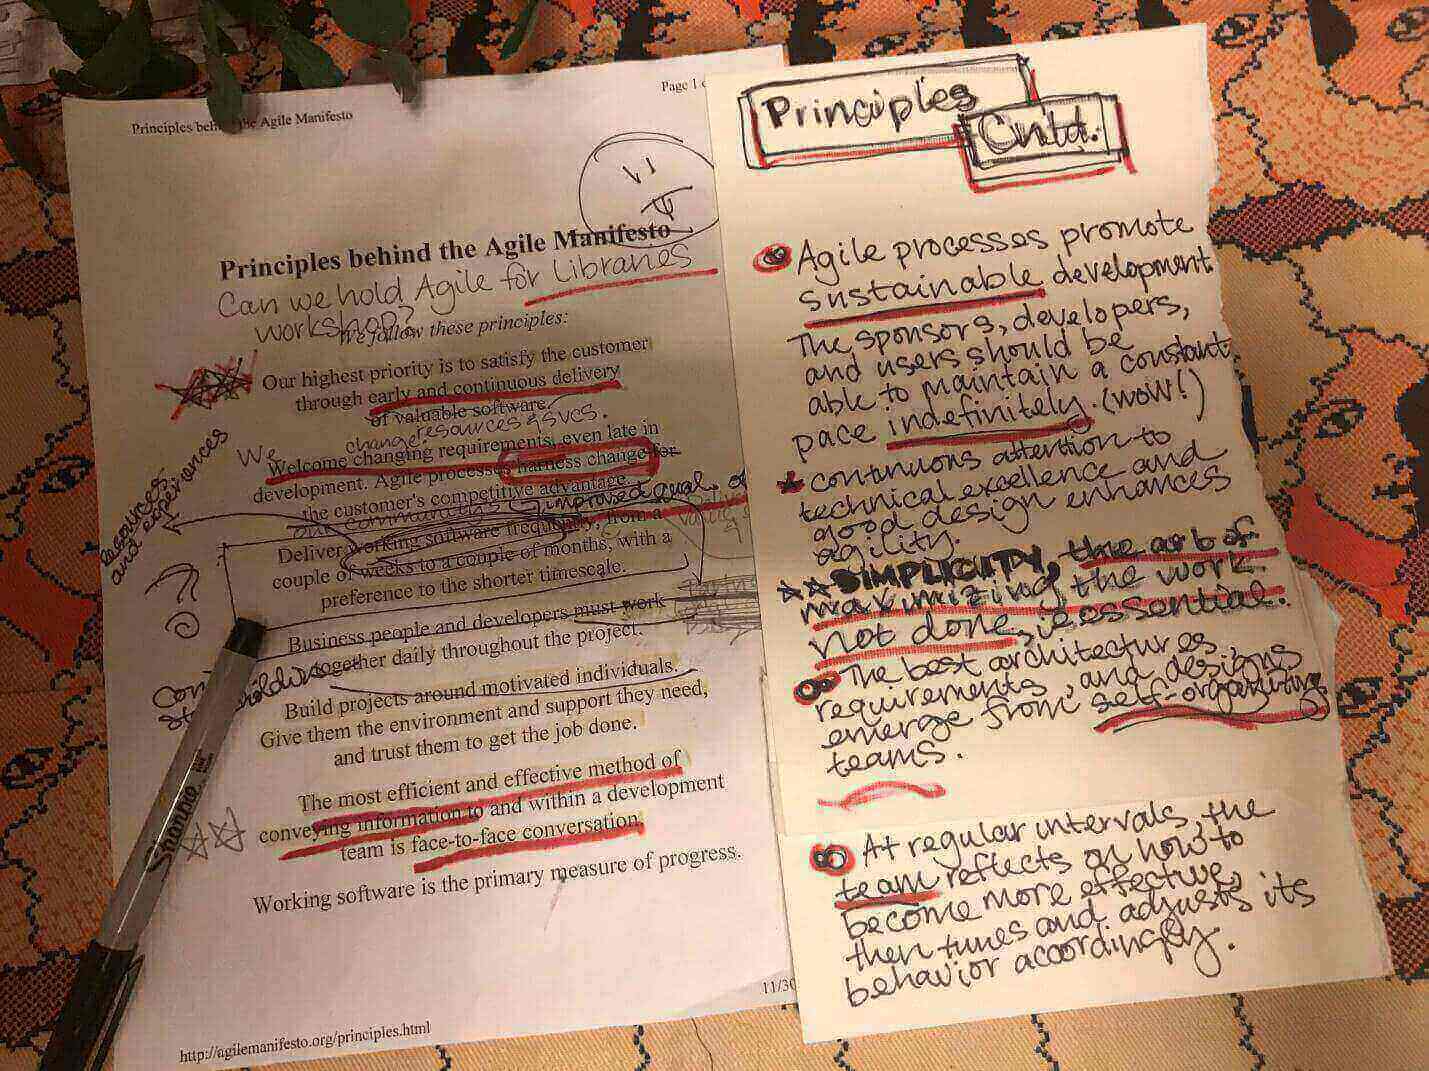 Page 1
Principles behind the Agile Manifesto
Principles behind the Agile Manifesto
Can we hold Agile for Libraries
workshop?
We follow these principles:
Our highest priority is to satisfy the customer
through early and continuous delivery
of valuable software.
We change resources & svcs.
Welcome changing requirements, even late in
development. Agile processes harness change for
the customer's competitive advantage.
our community's improved qual. of
Resources
and experiences
Deliver working software frequently, from a
couple of weeks to a couple of months, with a
preference to the shorter timescale.
Business people and developers must work
together daily throughout the project.
Build projects around motivated individuals.
Give them the environment and support they need,
and trust them to get the job done.
The most efficient and effective method of
conveying information to and within a development
team is face-to-face conversation.
Working software is the primary measure of progress.
http://agilemanifesto.org/principles.html
11/30
Sharpie
Principles
Cntd.
Agile processes promote
sustainable development
The sponsors, developers,
and users should be
able to maintain a constant
pace indefinitely. (wow!)
continuous attention to
technical excellence and
good design enhances
agility.
SIMPLICITY, the art of
maximizing the work
not done, is essential.
The best architectures,
requirements, and designs
emerge from self-organizing
teams.
At regular intervals, the
team reflects on how to
become more effective,
then tunes and adjusts its
behavior accordingly.